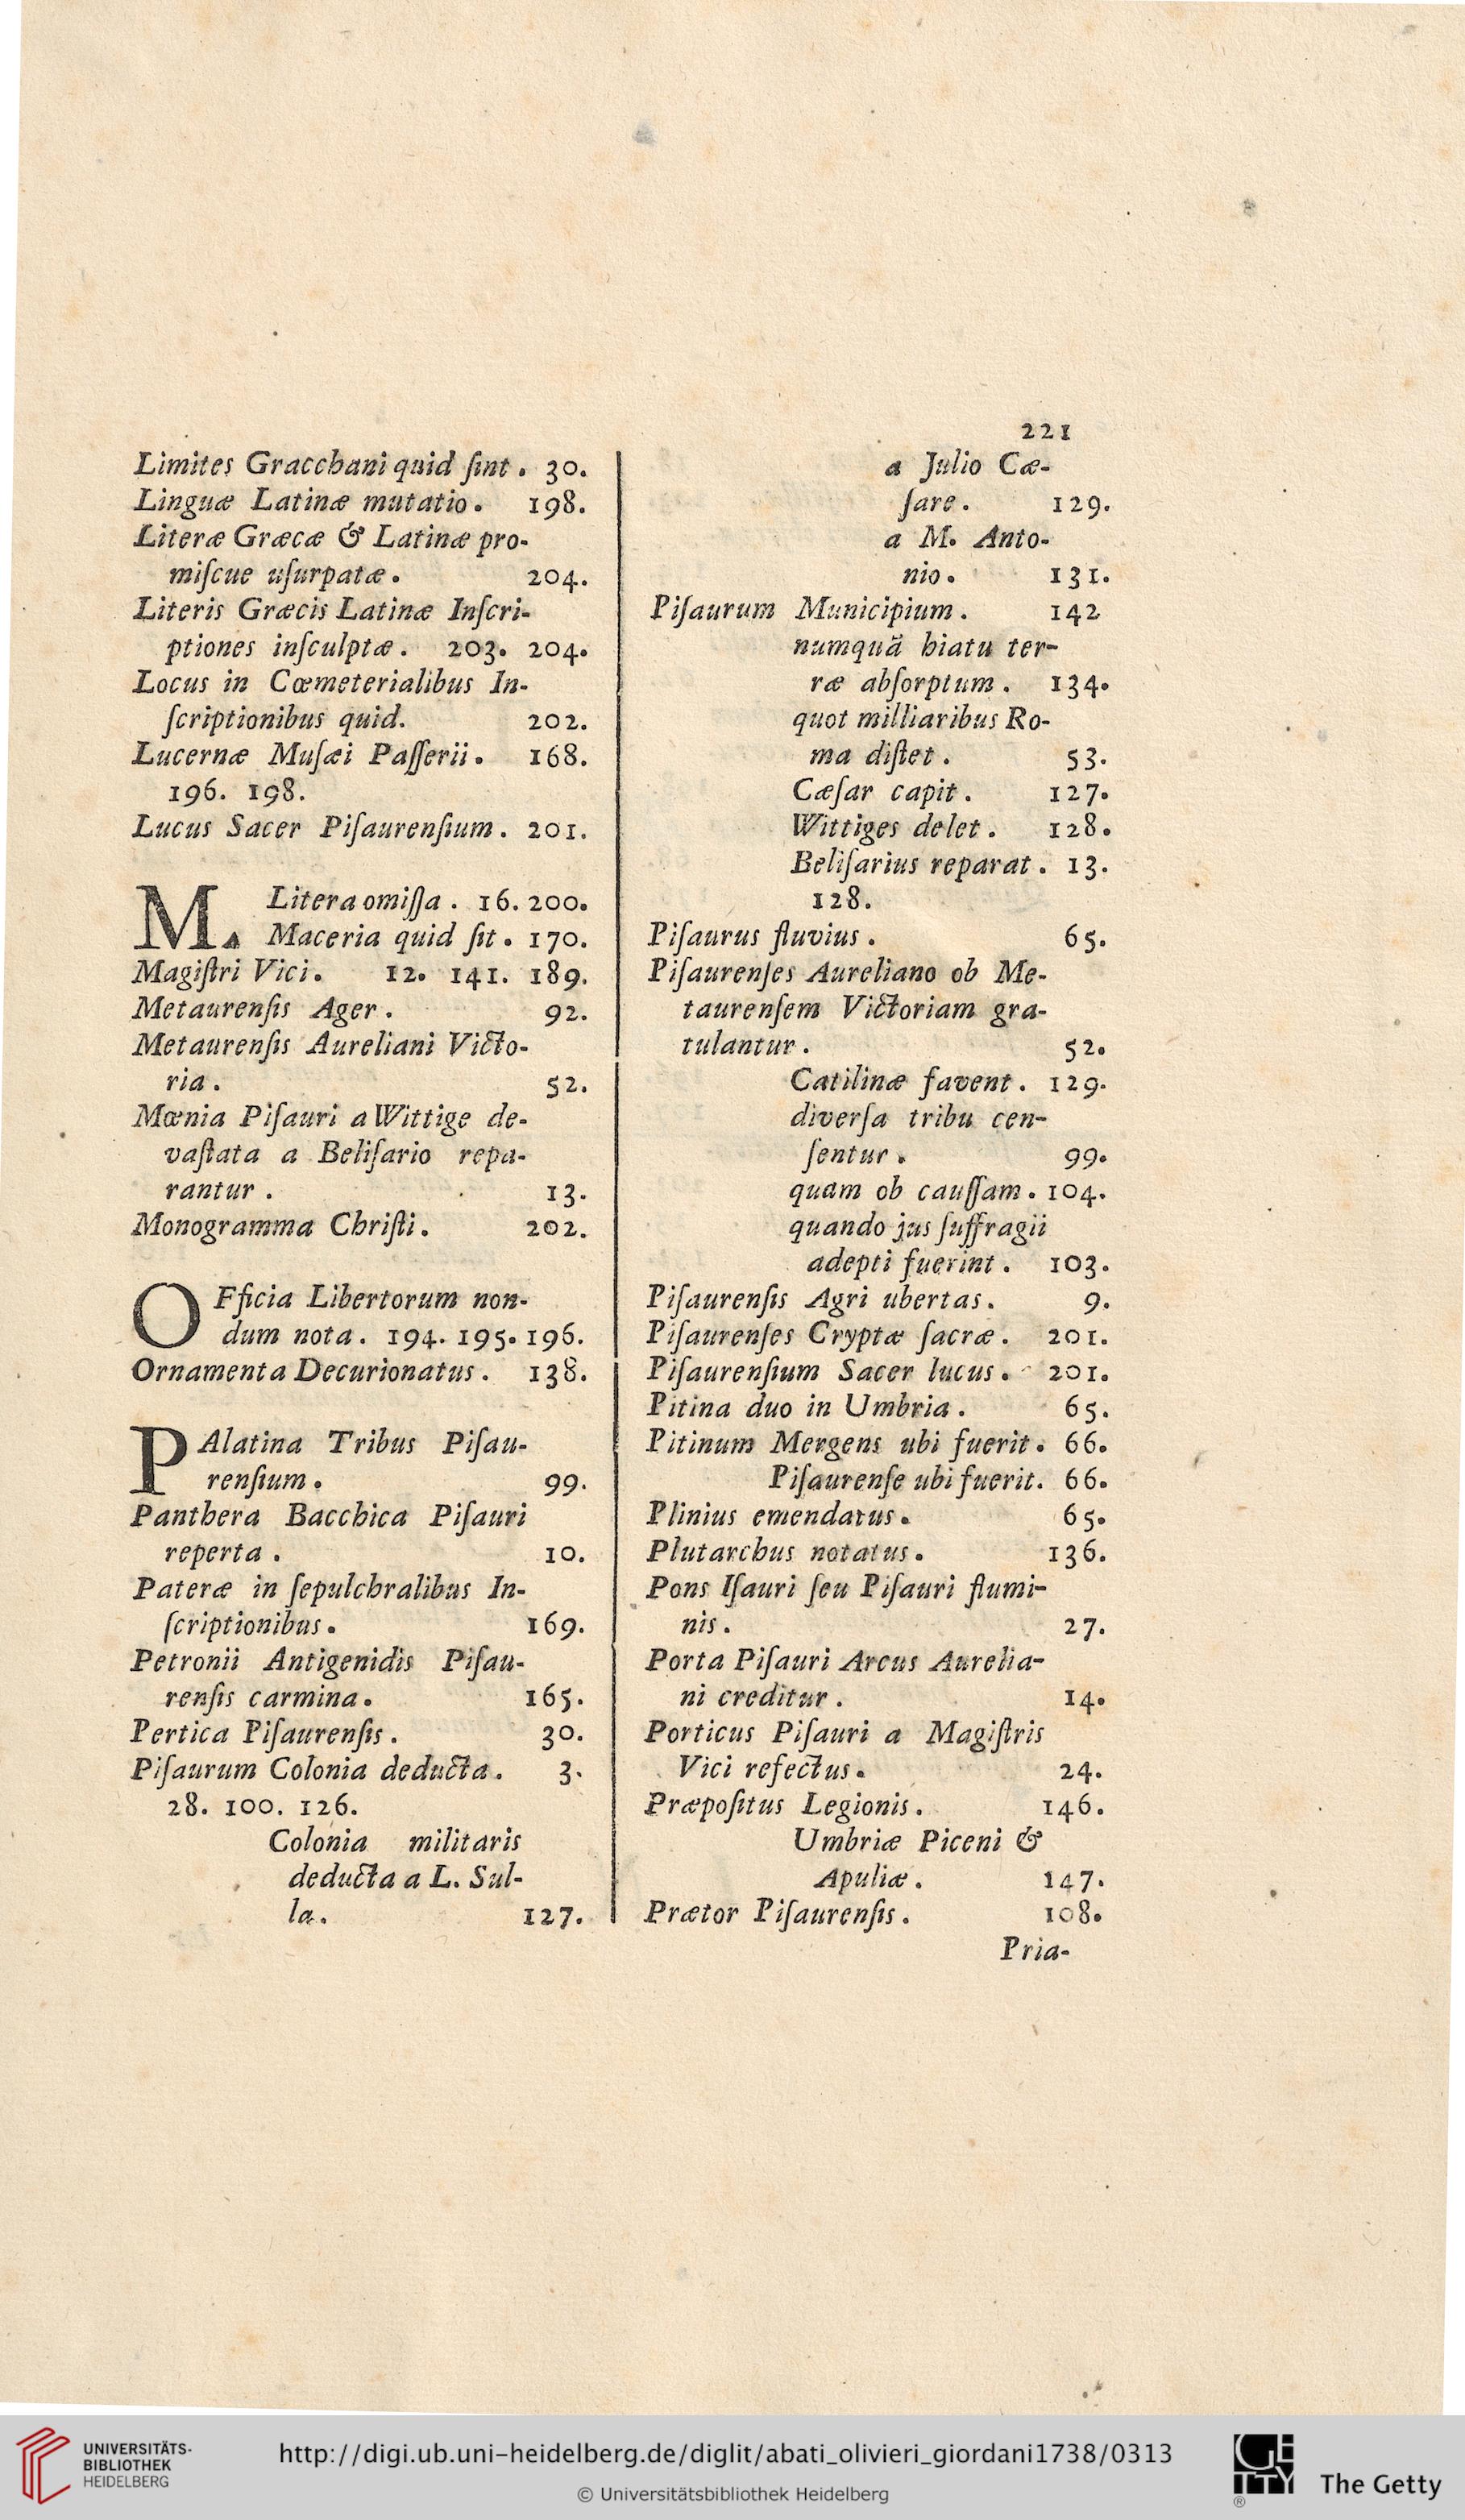 221
Limites Gracchani quid ſint. 30.
Linguæ Latinæ mutatio. 198.
Literæ Græcæ & Latinæ pro-
miſcue uſurpatæ. 204.
Literis Græcis Latinæ Inſcri-
ptiones inſculptæ. 203. 204.
Locus in Cœmeterialibus In-
ſcriptionibus quid. 202.
Lucernæ Muſæi Paſſerii. 168.
196. 198.
Lucus Sacer Piſaurenſium. 201.
M. Litera omiſſa. 16. 200.
Maceria quid ſit. 170.
Magiſtri Vici. 12. 141. 189.
Metaurenſis Ager. 92.
Metaurenſis Aureliani Victo-
ria. 52.
Mœnia Piſauri a Wittige de-
vaſtata a Beliſario repa-
rantur. 13.
Monogramma Chriſti. 202.
OFficia Libertorum non-
dum nota. 194. 195. 196.
Ornamenta Decurionatus. 138.
PAlatina Tribus Piſau-
renſium. 99.
Panthera Bacchica Piſauri
reperta. 10.
Pateræ in ſepulchralibus In-
ſcriptionibus. 169.
Petronii Antigenidis Piſau-
renſis carmina. 165.
Pertica Piſaurenſis. 30.
Piſaurum Colonia deducta. 3.
28. 100. 126.
Colonia militaris
deducta a L. Sul-
la. 127.
a Julio Cæ-
ſare. 129.
a M. Anto-
nio. 131.
Piſaurum Municipium. 142
numquã hiatu ter-
ræ abſorptum. 134.
quot milliaribus Ro-
ma diſtet. 53.
Cæſar capit. 127.
Wittiges delet. 128.
Beliſarius reparat. 13.
128.
Piſaurus fluvius. 65.
Piſaurenſes Aureliano ob Me-
taurenſem Victoriam gra-
tulantur. 52.
Catilinæ favent. 129.
diverſa tribu cen-
ſentur. 99.
quam ob cauſſam. 104.
quando jus ſuffragii
adepti fuerint. 103.
Piſaurenſis Agri ubertas. 9.
Piſaurenſes Cryptæ ſacræ. 201.
Piſaurenſium Sacer lucus. 201.
Pitina duo in Umbria. 65.
Pitinum Mergens ubi fuerit. 66.
Piſaurenſe ubi fuerit. 66.
Plinius emendatus. 65.
Plutarchus notatus. 136.
Pons Iſauri ſeu Piſauri flumi-
nis. 27.
Porta Piſauri Arcus Aurelia-
ni creditur. 14.
Porticus Piſauri a Magiſtris
Vici refectus. 24.
Præpoſitus Legionis. 146.
Umbriæ Piceni &
Apuliæ. 147.
Prætor Piſaurenſis. 108.
Pria-
UNIVERSITÄTS-
BIBLIOTHEK
HEIDELBERG
http://digi.ub.uni-heidelberg.de/diglit/abati_olivieri_giordani1738/0313
© Universitätsbibliothek Heidelberg
GETTY
®
The Getty